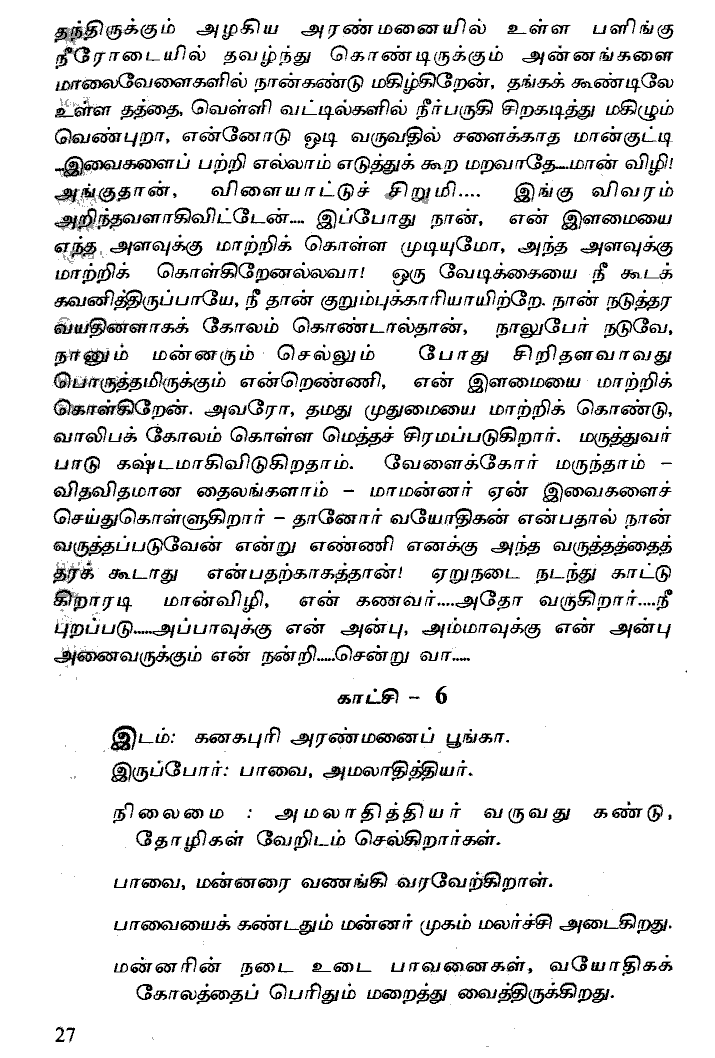 தந்திருக்கும் அழகிய அரண்மனையில் உள்ள பளிங்கு
நீரோடையில் தவழ்ந்து கொண்டிருக்கும் அன்னங்களை
மாலைவேளைகளில் நான்கண்டு மகிழ்கிறேன், தங்கக் கூண்டிலே
உள்ள தத்தை, வெள்ளி வட்டில்களில் நீர்பருகி சிறகடித்து மகிழும்
வெண்புறா, என்னோடு ஓடி வருவதில் சளைக்காத மான்குட்டி
...இவைகளைப் பற்றி எல்லாம் எடுத்துக் கூற மறவாதே....மான் விழி!
அங்குதான், விளையாட்டுச் சிறுமி.... இங்கு விவரம்
அறிந்தவளாகிவிட்டேன்.... இப்போது நான், என் இளமையை
எந்த அளவுக்கு மாற்றிக் கொள்ள முடியுமோ, அந்த அளவுக்கு
மாற்றிக் கொள்கிறேனல்லவா! ஒரு வேடிக்கையை நீ கூடக்
கவனித்திருப்பாயே, நீ தான் குறும்புக்காரியாயிற்றே. நான் நடுத்தர
வயதினளாகக் கோலம் கொண்டால்தான், நாலுபேர் நடுவே,
நானும் மன்னரும் செல்லும் போது சிறிதளவாவது
பொருத்தமிருக்கும் என்றெண்ணி, என் இளமையை மாற்றிக்
கொள்கிறேன். அவரோ, தமது முதுமையை மாற்றிக் கொண்டு,
வாலிபக் கோலம் கொள்ள மெத்தச் சிரமப்படுகிறார். மருத்துவர்
பாடு கஷ்டமாகிவிடுகிறதாம். வேளைக்கோர் மருந்தாம் –
விதவிதமான தைலங்களாம் – மாமன்னர் ஏன் இவைகளைச்
செய்துகொள்ளுகிறார் – தானோர் வயோதிகன் என்பதால் நான்
வருத்தப்படுவேன் என்று எண்ணி எனக்கு அந்த வருத்தத்தைத்
தரக் கூடாது என்பதற்காகத்தான்! ஏறுநடை நடந்து காட்டு
கிறாரடி மான்விழி, என் கணவர்....அதோ வருகிறார்....நீ
புறப்படு.....அப்பாவுக்கு என் அன்பு, அம்மாவுக்கு என் அன்பு
அனைவருக்கும் என் நன்றி.....சென்று வா.....
காட்சி – 6
இடம்: கனகபுரி அரண்மனைப் பூங்கா.
இருப்போர்: பாவை, அமலாதித்தியர்.
நிலைமை : அமலாதித்தியர் வருவது கண்டு,
தோழிகள் வேறிடம் செல்கிறார்கள்.
பாவை, மன்னரை வணங்கி வரவேற்கிறாள்.
பாவையைக் கண்டதும் மன்னர் முகம் மலர்ச்சி அடைகிறது.
மன்னரின் நடை உடை பாவனைகள், வயோதிகக்
கோலத்தைப் பெரிதும் மறைத்து வைத்திருக்கிறது.
27